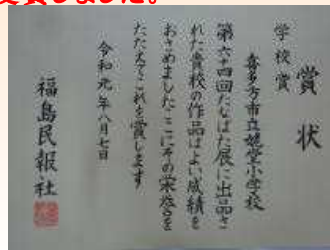 受賞しました。
賞状
学校賞
喜多方市立姥堂小学校
第六十四回たなばた展に出品さ
れた貴校の作品はよい成績を
おさめましたここにその栄誉を
たたえてこれを賞します
令和元年八月七日
福島民報社